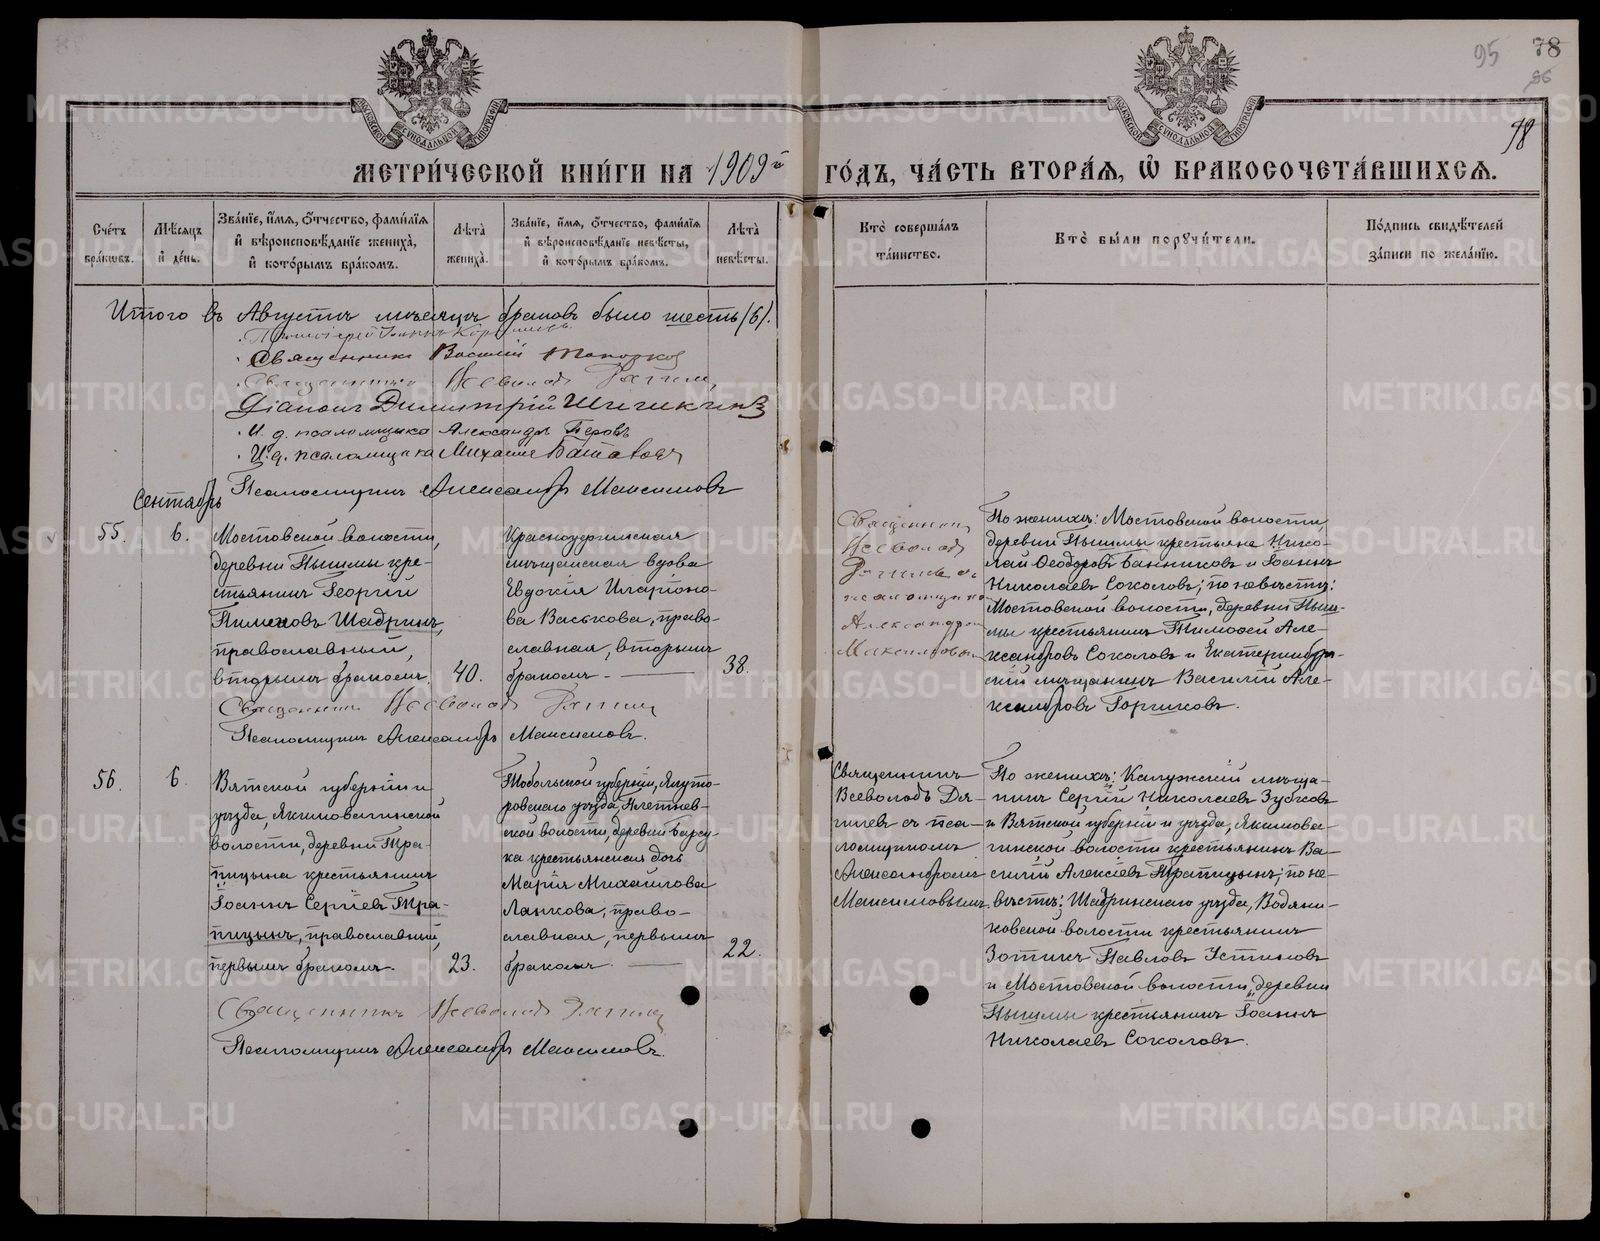 95
78
96
78
МЕТРИ́ЧЕСКОЙ КНИ́ГИ НА 1909й ГО́ДЪ, ЧА́СТЬ ВТОРА́Я, Ѡ БРАКОСОЧЕТА́ВШИХСЯ.
Сче́тъ
бра́ковъ.
Мѣ́сяцъ
и́ де́нь.
Зва́нїе, и́мя, ѻ́тчество, фами́лїя
и́ вѣроисповѣ́данїе жениха̀,
и́ кото́рымъ бра́комъ.
Лѣ́та̀
жениха̀.
Зва́нїе, и́мя, ѻ́тчество, фами́лїя
и́ вѣроисповѣ́данїе невѣ́сты,
и́ кото́рымъ бра́комъ.
Лѣ́та̀
невѣ́сты.
Кто̀ соверша́лъ
та́инство.
Кто̀ бы́ли порꙋчи́тели.
По́дпись свидѣ́телей
за́писи по жела́нїю.
Итого въ Августѣ мѣсяцѣ браковъ было шесть (6).
Священникъ Василій Топорковъ
Священникъ Всеволодъ
Діаконъ Димитрій
И. д. псаломщика Александръ Перовъ
И. д. псаломщика Михаилъ
Псаломщикъ Александръ Максимовъ
Сентябрь
55.
6.
Мостовской волости,
деревни Пышмы кре-
стьянинъ Георгій
Пименовъ Шадринъ,
православный,
вторымъ бракомъ.
40.
Красноуфимская
мѣщанская вдова
Евдокія Иларіоно-
ва Васькова, право-
славная, вторымъ
бракомъ.
38.
Священникъ
Всеволодъ
псаломщикомъ
Александромъ
Максимовымъ
По женихѣ: Мостовской волости,
деревни Пышмы крестьяне Нико-
лай Ѳеодоровъ Банниковъ и Іоаннъ
Николаевъ Соколовъ; по невѣстѣ:
Мостовской волости, деревни Пыш-
мы крестьянинъ Тимоѳей Але-
ксандровъ Соколовъ и Екатеринбург-
скій мѣщанинъ Василій Але-
ксандровъ Горшковъ.
Священникъ Всеволодъ
Псаломщикъ Александръ Максимовъ.
56.
6.
Вятской губерніи и
уѣзда, Якимовагинской
волости, деревни Тра-
пицына крестьянинъ
Іоаннъ Сергіевъ Тра-
пицынъ, православный,
первымъ бракомъ.
23.
Тобольской губерніи, Ялуто-
ровскаго уѣзда, Плетнев-
ской волости, деревни Барсу-
ка крестьянская дочь
Марія Михаилова
Лапкова, право-
славная, первымъ
бракомъ.
22.
Священникъ
Всеволодъ Дя-
гилевъ съ пса-
ломщикомъ
Александромъ
Максимовымъ.
По женихѣ: Калужскій мѣща-
нинъ Сергій Николаевъ Зубковъ
и Вятской губерніи и уѣзда, Якимова-
гинской волости крестьянинъ Ва-
силій Алексіевъ Трапицынъ; по не-
вѣстѣ: Шадринскаго уѣзда, Водени-
ковской волости крестьянинъ
Зотикъ Павловъ Устиновъ
и Мостовской волости, деревни
Пышмы крестьянинъ Іоаннъ
Николаевъ Соколовъ.
Священникъ Всеволодъ
Псаломщикъ Александръ Максимовъ.
METRIKI.GASO-URAL.RU